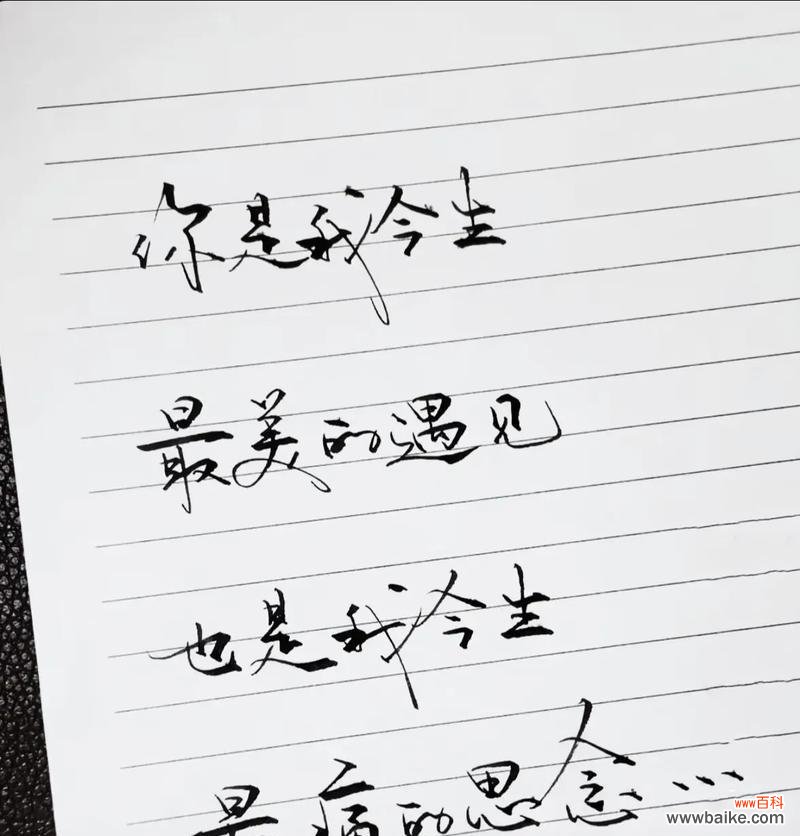 你是我今生
最美的遇见
也是我今生
最痛的思念…
www百科
www.baike.com